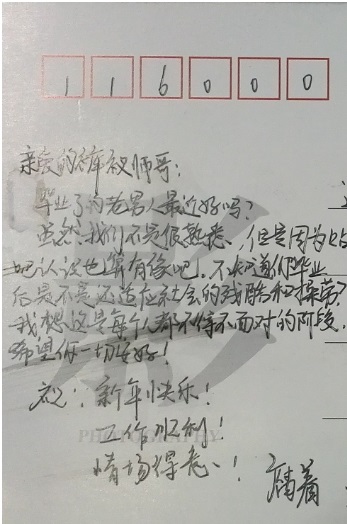 116000
亲爱的 师哥:
毕业了的老男人最近好吗?
虽然我们不是很熟悉,但是因为
吧认识也算有缘吧。不知道你毕业
后是不是还适应社会的残酷和操劳?
我想这是每个人都不得不面对的阶段,
希望你一切安好!
祝:新年快乐!
工作顺利!
情场得意!